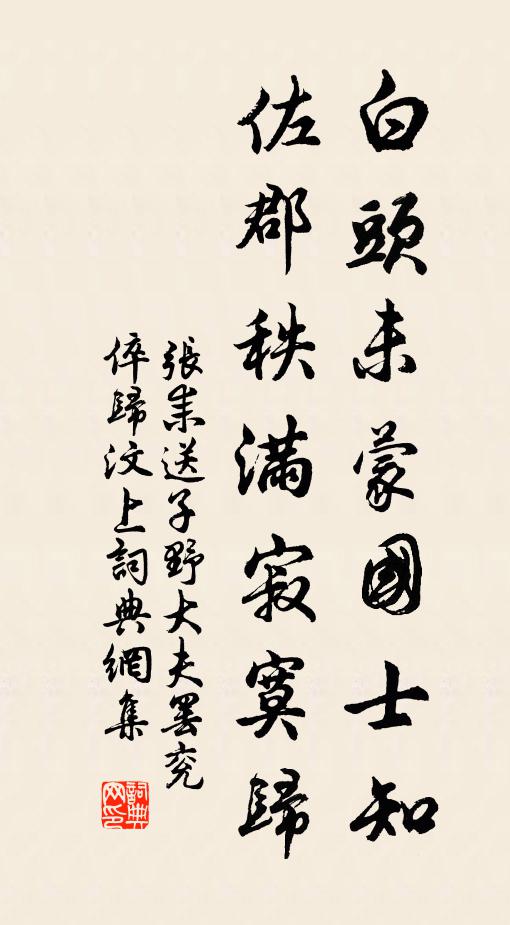 白頭未蒙國士知
佐郡秩滿寂寞歸
張耒送子野大夫罷兗
倅歸汶上詞典網集
詞典网印